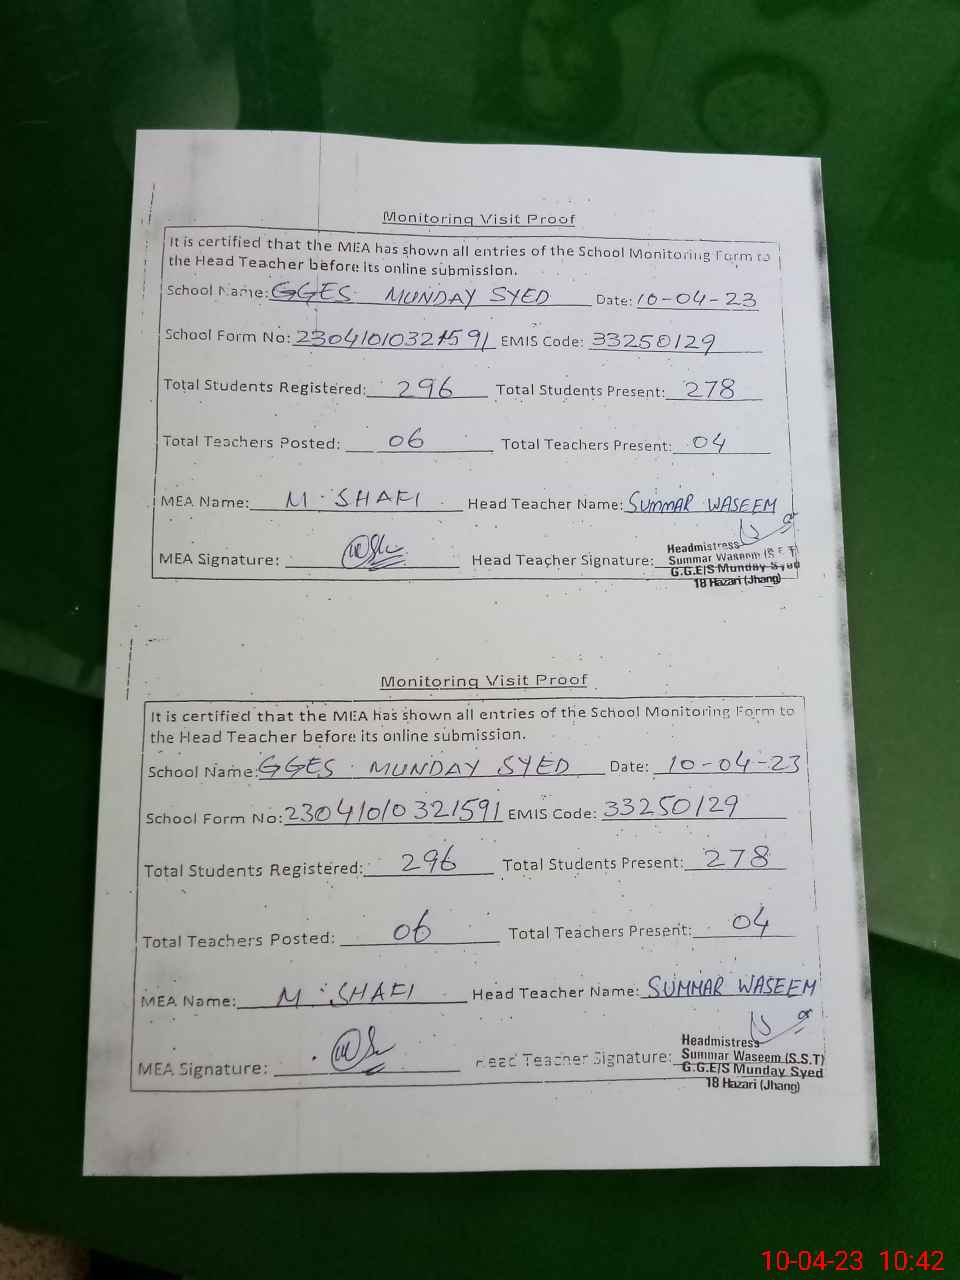 Monitoring Visit Proof
It is certified that the MEA has shown all entries of the School Monitoring Form to
the Head Teacher before its online submission.
School Name: GGES MUNDAY SYED Date: 10-04-23
School Form No: 23041010321591 EMIS Code: 33250129
Total Students Registered: 296 Total Students Present: 278
Total Teachers Posted: 06 Total Teachers Present: 04
MEA Name: M. SHAFI Head Teacher Name: SUMMAR WASEEM
MEA Signature: Head Teacher Signature:
Headmistress
Summar Waseem (S.S.T)
G.G.E/S Munday Syed
18 Hazari (Jhang)
Monitoring Visit Proof
It is certified that the MEA has shown all entries of the School Monitoring Form to
the Head Teacher before its online submission.
School Name: GGES MUNDAY SYED Date: 10-04-23
School Form No: 23041010321591 EMIS Code: 33250129
Total Students Registered: 296 Total Students Present: 278
Total Teachers Posted: 06 Total Teachers Present: 04
MEA Name: M. SHAFI Head Teacher Name: SUMMAR WASEEM
MEA Signature: Head Teacher Signature:
Headmistress
Summar Waseem (S.S.T)
G.G.E/S Munday Syed
18 Hazari (Jhang)
10-04-23 10:42